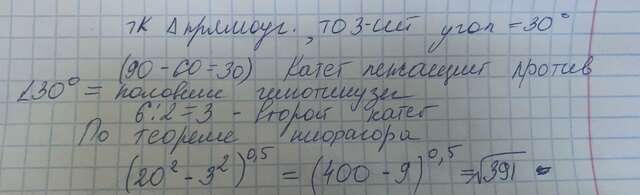 тк Δ прямоуг., то 3-ий угол = 30°
(90-60=30) Катет лежащий против
∠30° = половине гипотинузы
6:2=3 - второй катет
По теореме пиорагора
(20² - 3²)^0,5 = (400 - 9)^0,5 = √391